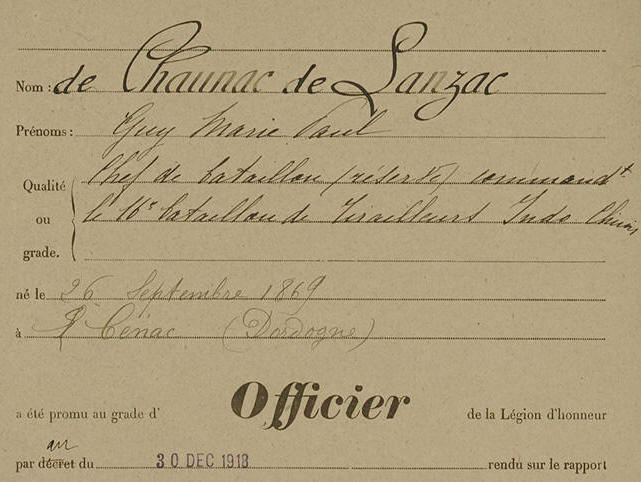 Nom : de Chaunac de Lanzac
Prénoms : Guy Marie Paul
Qualité ou grade. Chef de bataillon (réserve) command^t
le 16^e bataillon de Tirailleurs Indo Chinois
né le 26 Septembre 1869
à Cénac (Dordogne)
a été promu au grade d' Officier de la Légion d'honneur
arr
par décret du 30 DEC 1918 rendu sur le rapport